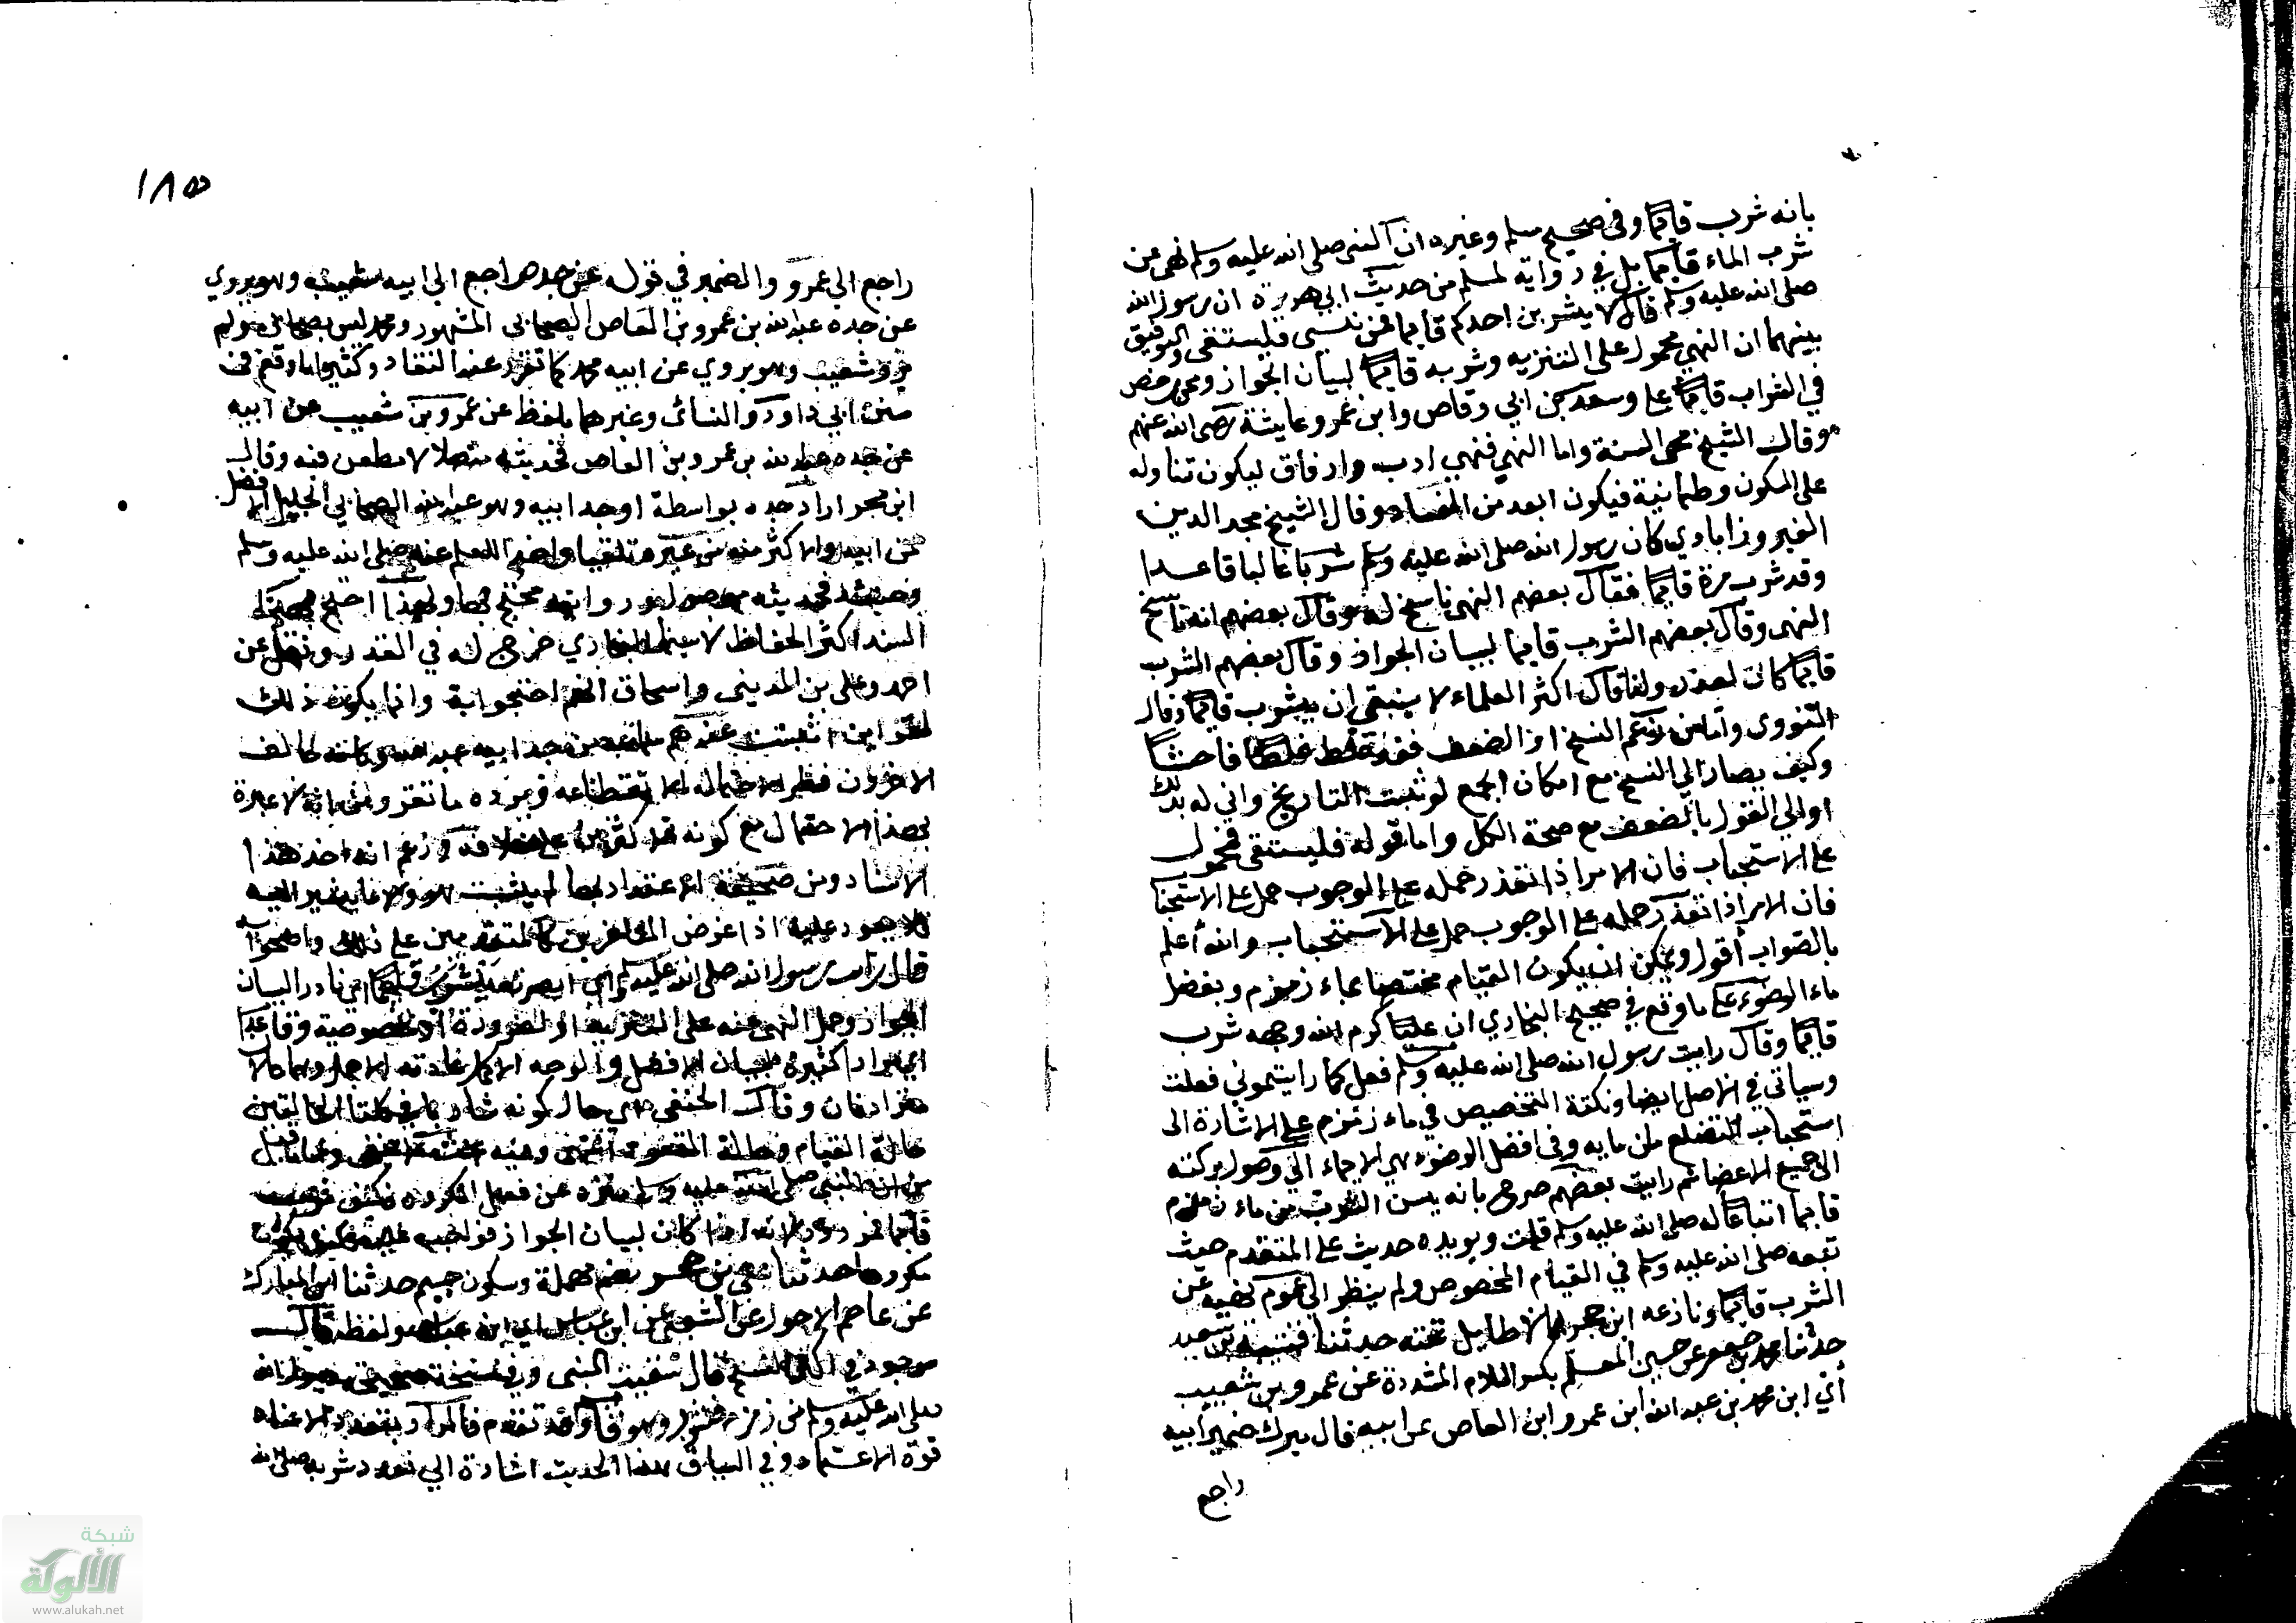 بانه شرب قايما وفى صحيح مسلم وغيره ان النبى صلى الله عليه وسلم نهى عن
شرب الماء قايما بل في رواية لمسلم من حديث ابي هريرة ان رسول الله
صلى الله عليه وسلم قال لا يشربن احدكم قايما فمن نسى فليستقى والتوفيق
بينهما ان النهي محمول على التنزيه وشربه قايما لبيان الجواز وممن رخص
في الشراب قايما علي وسعد بن ابي وقاص وابن عمر وعايشة رضى الله عنهم
وقال الشيخ محى السنة واما النهي فنهي ادب وارفاق ليكون تناوله
على السكون وطمانينة فيكون ابعد من الفساد وقال الشيخ مجد الدين
الفيروزابادي كان رسول الله صلى الله عليه وسلم شربا غالبا قاعدا
وقد شرب مرة قايما فقال بعضهم النهى ناسخ له وقال بعضهم انه ناسخ
النهى وقال بعضهم الشرب قايما لبيان الجواز وقال بعضهم الشرب
قايما كان لعذر ولذا قال اكثر العلماء لا ينبغي ان يشرب قايما وقال
النووى واما من زعم النسخ او الضعف فقد غلط غلطا فاحشا
وكيف يصار الي النسخ مع امكان الجمع لو ثبت التاريخ واني له بذلك
او الي القول بالضعف مع صحة الكل واما قوله فليستقى فمحمول
على الاستحباب فان الامر اذا تعذر حمله على الوجوب حمل على الاستحباب
فان الامر اذا تعذر حمله على الوجوب حمل على الاستحباب والله أعلم
بالصواب أقول ويمكن ان يكون القيام مختصا بماء زمزم وبفضل
ماء الوضوء على ما وقع في صحيح البخاري ان عليا كرم الله وجهه شرب
قايما وقال رايت رسول الله صلى الله عليه وسلم فعل كما رايتموني فعلت
وسياتي في الاصل ايضا ونكتة التخصيص في ماء زمزم على الاشارة الى
استحباب التضلع من مايه وفى افضل الوضوء هي الايماء الي وصول بركته
الى جميع الاعضا ثم رايت بعضهم صرح بانه يسن الشرب من ماء زمزم
قايما اتباعا له صلى الله عليه وسلم قلت ويويده حديث علي المتقدم حيث
تبعه صلى الله عليه وسلم في القيام المخصوص ولم ينظر الي عموم نهيه عن
الشرب قايما ونازعه ابن حجر بما لا طايل تحته حدثنا قتيبة بن سعيد
حدثنا محمد بن جعفر عن حسين المعلم بكسر اللام المشددة عن عمرو بن شعيب
أي ابن محمد بن عبد الله ابن عمرو ابن العاص عن ابيه قال ميرك ضمير ابيه
راجع
١٨٥
راجع الي عمرو والضمير في قوله عن جده راجع الي ابيه شعيب وهو يروي
عن جده عبد الله بن عمرو بن العاص الصحابي المشهور ومحمد ليس بصحابي ولم
يرو شعيب وهو يروي عن ابيه محمد كما تقرر عند النقاد وكثيرا ما وقع فى
سنن ابي داود والنسائى وغيرهما بلفظ عن عمرو بن شعيب عن ابيه
عن جده عبد الله بن عمرو بن العاص فحديثه متصلا لا مطعن فيه وقال
ابن حجر اراد جده بواسطة او جد ابيه وهو عبد الله الصحابي الجليل افضل
من ابيه والاكثر منه ومن غيره تلقيا واخذا للعلم عنه صلى الله عليه وسلم
وحينئذ فحديثه موصول وروايته محتج بها ولهذا احتج بهذا
السند اكثر الحفاظ لا سيما البخاري خرج له في القدر ونقل عن
احمد وعلى بن المديني واسحاق انهم احتجوا به وانما يكون ذلك
لقراين اثبتت عندهم سماعه من جد ابيه عبد الله وكانه خالف
الاخرون فنظر لاحتمال الانقطاعه ويرده ما تقرر انه لا عبرة
بهذا الاحتمال مع كونه الاكثرين على خلافه وزعم انه اخذ هذا
الاسناد من صحيفة لا اعتداد بها لم يثبت
اذا عرض المتاخرين كالمتقدمين على ذلك واحتجوا به
قال رايت رسول الله صلى الله عليه وسلم اي ابصرته يشرب قايما اي نادرا لبيان
الجواز وحمل النهى عنه على التنزيه او لضرورة او لخصوصية وقاعدا
اي مرارا كثيرة لبيان الافضل والوجه الاكمل لعادته الاجمل وهما حالان
مترادفان وقال الحنفى هي حال كونه شاربا في كلتا الحالتين
حالة القيام وحالة القعود انتهى وفيه بحث لا يخفى وما قيل
من ان النبي صلى الله عليه وسلم منزه عن فعل المكروه فكيف شرب
قايما فمردود لانه اذا كان لبيان الجواز فواجب عليه فكيف يكون
مكروها حدثنا علي بن حجر بضم مهملة وسكون جيم حدثنا ابن المبارك
عن عاصم الاحول عن الشعبى عن ابن عباس اي ابن عباس ولفظه قال
موجود في النسخ قال سقيت النبى وفي نسخة صحيحة رسول الله
صلى الله عليه وسلم من زمزم فشرب وهو قايم وقد تقدم فايدة تعدد الاسناد
قوة الاعتماد وفى السياق هذا الحديث اشارة الي تعدد شربه صلى الله
شبكة
الألوكة
www.alukah.net